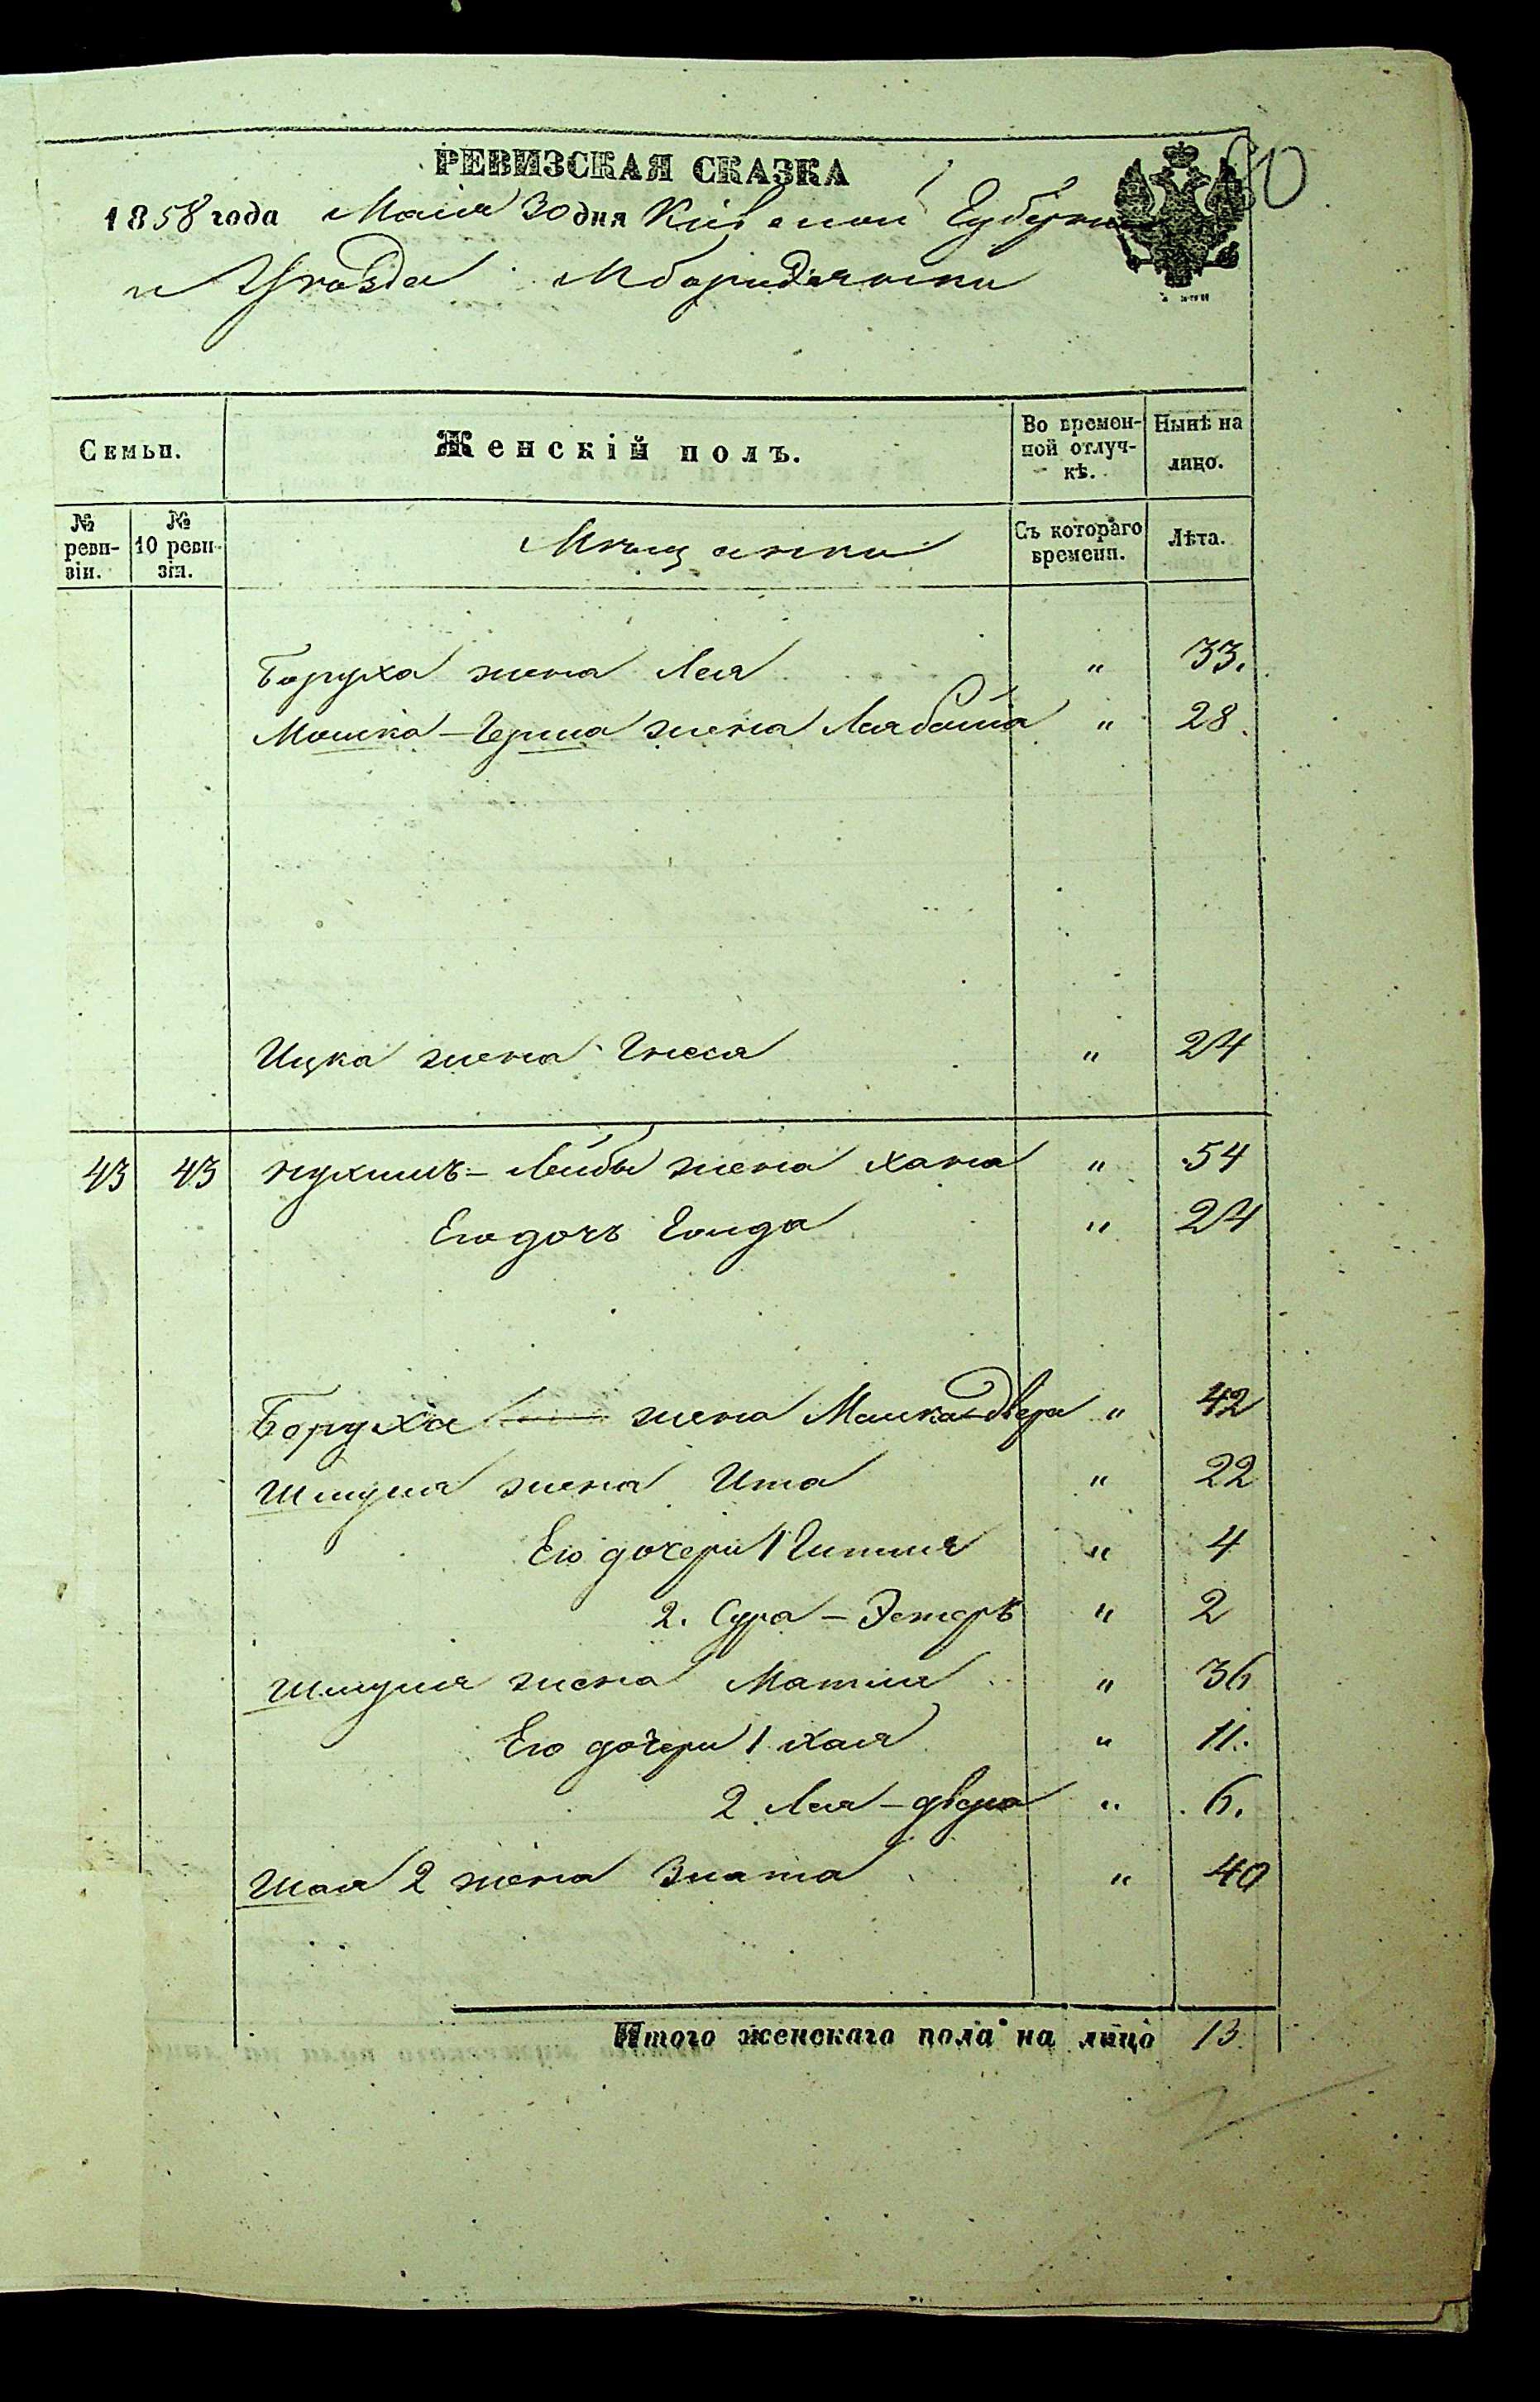 РЕВИЗСКАЯ СКАЗКА
60
1858 года Маія 30 дня Кіевской Губерніи
и Уѣзда М Бородянки
Семьи.
Женскій полъ.
Во времен-
ной отлуч-
кѣ.
Нынѣ на
лицо.
№
реви-
зіи.
№
10 реви-
зіи.
Мѣщанки
Съ котораго
времени.
Лѣта.
Боруха жена Лея " 33.
Мошка-Герша жена Лея " 28.
Ицка жена Гнеся " 24
43 43 Нухимъ-Лейбы жена Хана " 54
Его дочь Голда " 24
Боруха жена Малка-Двера " 42
Шмуля жена Ита " 22
Его дочери 1 Гитля " 4
2. Сура-Эстеръ " 2
Шмуля жена Матля " 36
Его дочери 1 Хая " 11.
2 Лея-двера " 6.
Шая 2 жена Злата " 40
Итого женскаго пола на лицо 13.